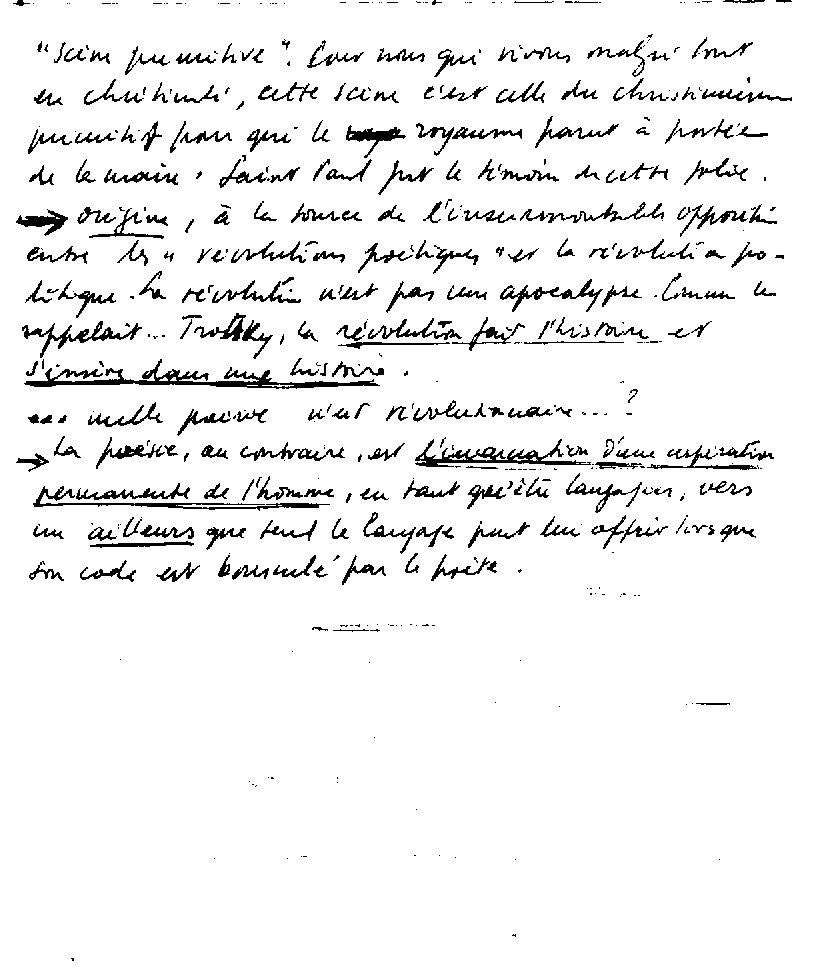 "Scène primitive". Pour nous qui vivons malgré tout
en chrétienté, cette scène c'est celle du christianisme
primitif pour qui le royaume parut à portée
de la main. Saint Paul fut le témoin de cette folie.
→ origine, à la source de l'insurmontable opposition
entre les "révolutions poétiques" et la révolution po-
litique. La révolution n'est pas une apocalypse. Comme le
rappelait... Trotsky, la révolution fait l'histoire et
s'insère dans une histoire.
... nulle poésie n'est révolutionnaire...?
→ La poésie, au contraire, est l'incarnation d'une aspiration
permanente de l'homme, en tant qu'être langagier, vers
un ailleurs que seul le langage peut lui offrir lorsque
son code est bousculé par le poète.